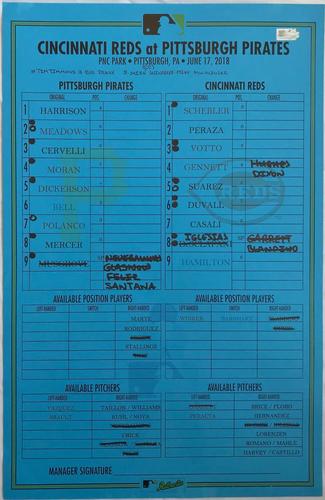 CINCINNATI REDS at PITTSBURGH PIRATES
PNC PARK • PITTSBURGH, PA • JUNE 17, 2018
PITTSBURGH PIRATES
CINCINNATI REDS
ORIGINAL POS. CHANGE
ORIGINAL POS. CHANGE
1 HARRISON
1 SCHEBLER
2 MEADOWS
2 PERAZA
3 CERVELLI
3 VOTTO
4 MORAN
4 GENNETT HUGHES
DIXON
5 DICKERSON
5 SUAREZ
6 BELL
6 DUVALL
7 POLANCO
7 CASALI
8 MERCER
8 IGLESIAS GARRETT
BLANDINO
9 MUSGROVE
GLASNOW
FELIZ
SANTANA
9 HAMILTON
REDS
AVAILABLE POSITION PLAYERS
AVAILABLE POSITION PLAYERS
LEFT-HANDED SWITCH RIGHT-HANDED
LEFT-HANDED SWITCH RIGHT-HANDED
MARTE
RODRIGUEZ
STALLINGS
WINKER BARNHART
AVAILABLE PITCHERS
AVAILABLE PITCHERS
LEFT-HANDED RIGHT-HANDED
LEFT-HANDED RIGHT-HANDED
VAZQUEZ TAILLON / WILLIAMS
BRAULT KUHL / NOVA
CRICK
BRICE / FLORO
PERALTA HERNANDEZ
LORENZEN
ROMANO / MAHLE
HARVEY / CASTILLO
MANAGER SIGNATURE